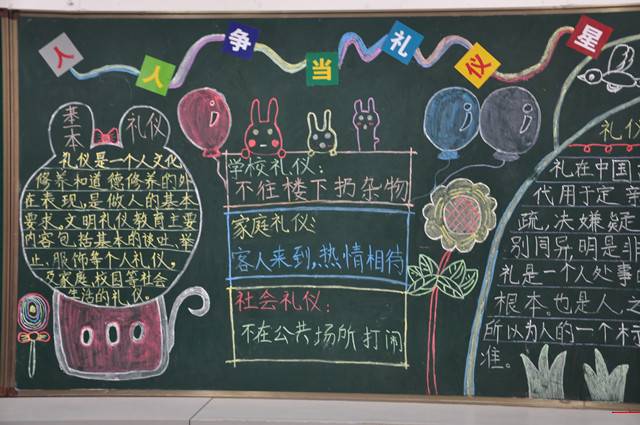 人人争当礼仪星
基本 礼仪
礼仪是一个人文化
修养和道德修养的外
在表现,是做人的基本
要求。文明礼仪教育主要
内容包括基本的谈吐、举
止、服饰等个人礼仪。
及家庭、校园等社会
生活的礼仪。
学校礼仪:
不往楼下扔杂物
家庭礼仪:
客人来到,热情相待
社会礼仪:
不在公共场所打闹
礼仪
礼在中国
代用于定
疏,决嫌疑
别同异,明是非
礼是一个人处事
根本.也是人
所以为人的一个标
准。